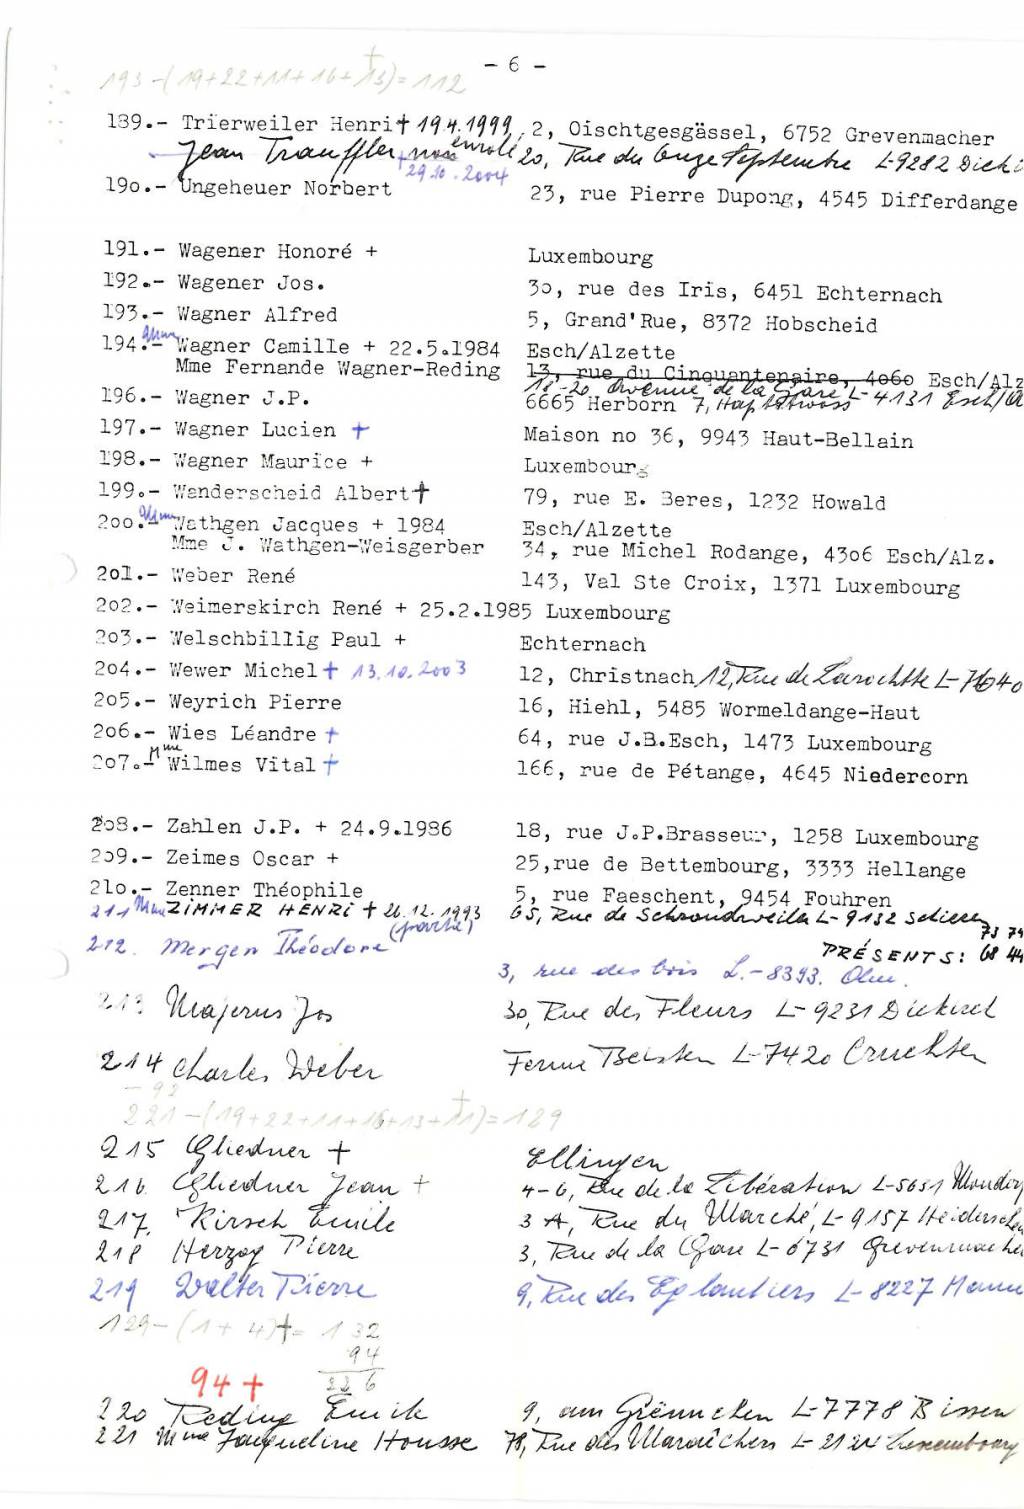 - 6 -
193-(19+22+11+16+13)=112
189.- Trierweiler Henri † 19.4.1999, 2, Oischtgesgässel, 6752 Grevenmacher
Jean Trauffler non enrolé 20, Rue du Onze Septembre L-9282 Dieki
+ 29.10.2004
190.- Ungeheuer Norbert 23, rue Pierre Dupong, 4545 Differdange
191.- Wagener Honoré + Luxembourg
192.- Wagener Jos. 30, rue des Iris, 6451 Echternach
193.- Wagner Alfred 5, Grand'Rue, 8372 Hobscheid
194.- Mme Wagner Camille + 22.5.1984 Esch/Alzette
Mme Fernande Wagner-Reding 13, rue du Cinquantenaire, 4060 Esch/Alz
18-20 Avenue de la Gare L-4131 Esch/A
196.- Wagner J.P. 6665 Herborn 7, Haptstrooss
197.- Wagner Lucien + Maison no 36, 9943 Haut-Bellain
198.- Wagner Maurice + Luxembourg
199.- Wanderscheid Albert † 79, rue E. Beres, 1232 Howald
200.- Mme Wathgen Jacques + 1984 Esch/Alzette
Mme J. Wathgen-Weisgerber 34, rue Michel Rodange, 4306 Esch/Alz.
201.- Weber René 143, Val Ste Croix, 1371 Luxembourg
202.- Weimerskirch René + 25.2.1985 Luxembourg
203.- Welschbillig Paul + Echternach
204.- Wewer Michel + 13.10.2003 12, Christnach 12, Rue de Larochtte L-7640
205.- Weyrich Pierre 16, Hiehl, 5485 Wormeldange-Haut
206.- Wies Léandre + 64, rue J.B.Esch, 1473 Luxembourg
207.- Mme Wilmes Vital + 166, rue de Pétange, 4645 Niedercorn
208.- Zahlen J.P. + 24.9.1986 18, rue J.P.Brasseur, 1258 Luxembourg
209.- Zeimes Oscar + 25,rue de Bettembourg, 3333 Hellange
210.- Zenner Théophile 5, rue Faeschent, 9454 Fouhren
211 Mme ZIMMER HENRI + 26.12.1993 65, Rue de Schrondweiler L-9132 Schieren
73 79
212. Mergen Théodore PRÉSENTS: 68 44
3, rue des bois L.-8393. Olm.
213 Majerus Jos 30, Rue des Fleurs L-9231 Diekirch
214 Charles Weber Ferme Beisten L-7420 Cruchten
-92
221-(19+22+11+16+13+11)=129
215 Gliedner + Ellingen
216 Gliedner Jean + 4-6, Rue de la Libération L-5651 Mondorf
217. Kirsch Emile 3 A, Rue du Marché, L-9157 Heidersche
218 Herzog Pierre 3, Rue de la Gare L-6731 Grevenmache
219 Walter Pierre 9, Rue des Eglantiers L-8227 Mamer
129-(1+4)†= 132
94
94 +
226
220 Reding Emile 9, am Grënnchen L-7778 Bissen
221 Mme Jacqueline Housse 78, Rue des Maraîchers L-2124 Luxembourg